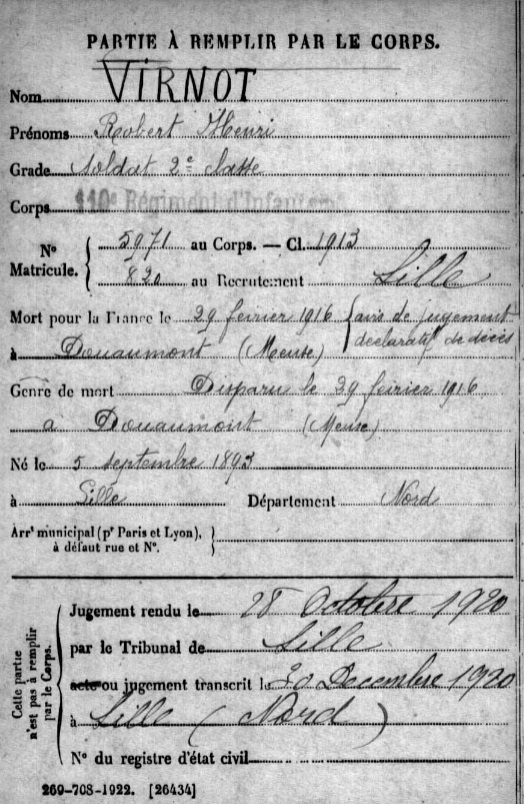 PARTIE À REMPLIR PAR LE CORPS.
Nom VIRNOT
Prénoms Robert Henri
Grade Soldat 2e classe
Corps 110e Régiment d'Infanterie
No Matricule. { 5971 au Corps. — Cl. 1913
820 au Recrutement Lille
Mort pour la France le 29 février 1916 (avis de jugement
à Douaumont (Meuse) déclaratif de décès
Genre de mort Disparu le 29 février 1916
a Douaumont (Meuse)
Né le 5 septembre 1893
à Lille Département Nord
Arrt municipal (pr Paris et Lyon), }
à défaut rue et No.
Cette partie n'est pas à remplir par le Corps.
Jugement rendu le 28 Octobre 1920
par le Tribunal de Lille
acte ou jugement transcrit le 20 Decembre 1920
à Lille (Nord)
No du registre d'état civil
269-708-1922. [26434]